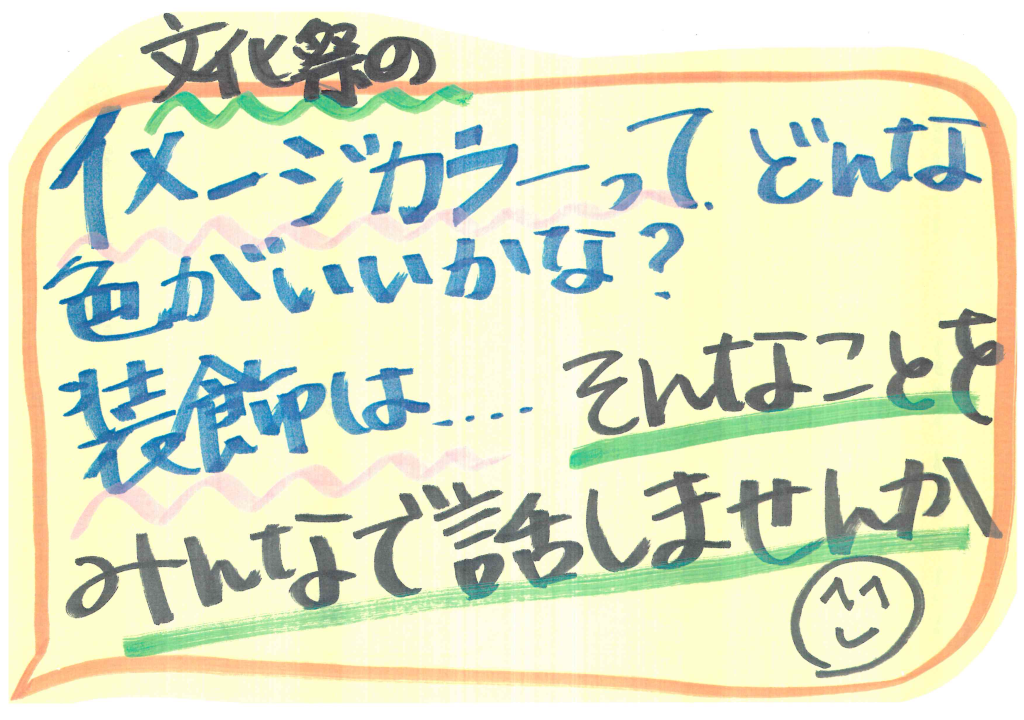 文化祭の
イメージカラーって どんな
色がいいかな?
装飾は.... そんなことを
みんなで話しませんか